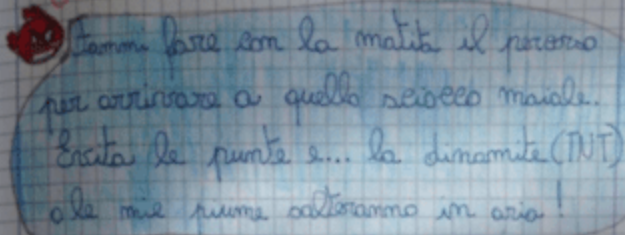 Fammi fare con la matita il percorso
per arrivare a quello sciocco maiale.
Evita le punte e... la dinamite (TNT)
o le mie piume salteranno in aria!